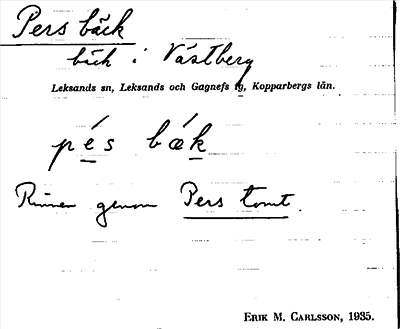 Pers bäck
bäck i Västberg
Leksands sn, Leksands och Gagnefs tg, Kopparbergs län.
pés bǽk
Rinner genom Pers tomt.
ERIK M. CARLSSON, 1935.